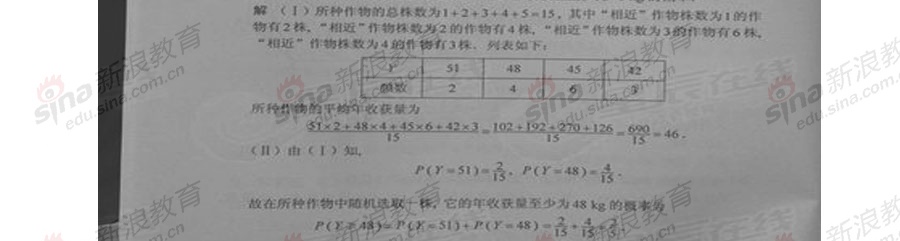 解 (Ⅰ)所种作物的总株数为1+2+3+4+5=15,其中“相近”作物株数为1的作
物有2株,“相近”作物株数为2的作物有4株,“相近”作物株数为3的作物有6株,
“相近”作物株数为4的作物有3株.列表如下:
Y 51 48 45 42
频数 2 4 6 3
所种作物的平均年收获量为
51×2+48×4+45×6+42×3/15=102+192+270+126/15=690/15=46.
(Ⅱ)由(Ⅰ)知,
P(Y=51)=2/15,P(Y=48)=4/15.
故在所种作物中随机选取一株,它的年收获量至少为48 kg的概率为
P(Y≥48)=P(Y=51)+P(Y=48)=2/15+4/15=2/5.
sina 新浪教育
edu.sina.com.cn